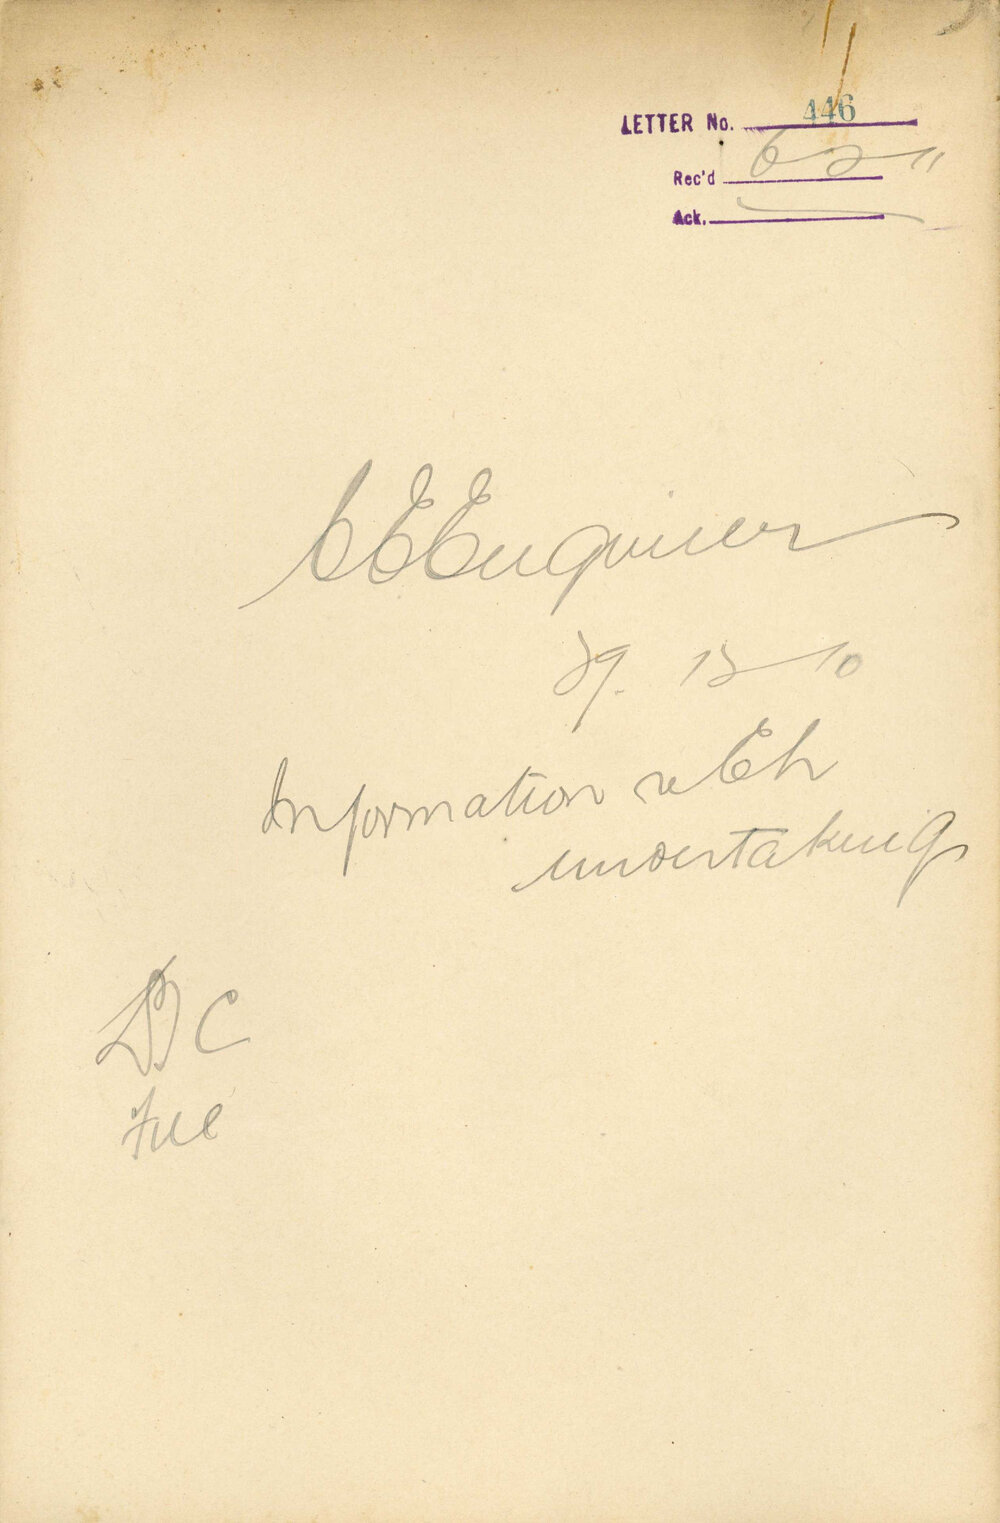 LETTER No. 446
Rec'd 6 2 11
Ack.
C E Engineer
29. 12 10
Information re Eh
undertaking
C
File